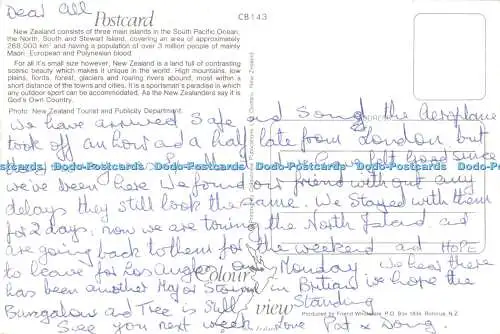 Dear All
Postcard
CB143
New Zealand consists of three main islands in the South Pacific Ocean,
the North, South and Stewart Island, covering an area of approximately
268,000 km² and having a population of over 3 million people of mainly
Maori, European and Polynesian blood.
For all it's small size however, New Zealand is a land full of contrasting
scenic beauty which makes it unique in the world. High mountains, low
plains, fiords, forest, glaciers and roaring rivers abound, most within a
short distance of the towns and cities. It is a sportsman's paradise in which
any outdoor sport can be accommodated. As the New Zealanders say it is
God's Own Country.
Photo: New Zealand Tourist and Publicity Department.
We have arrived Safe and Song, the Aeroplane
took off an hour and a half late from London, but
since
we've been here. We found our friend without any
delays they still look the same. We stayed with them
for 2 days, now we are touring the North Island. and
are going back to them for the weekend and HOPE
to leave for Los Angles on Monday we hear there
has been another Major Storm in Britian we hope the
Bungalow and Tree is Still Standing
See you next week love Pat & Doug.
Colour
view
Produced by Friend Wholesale, P.O. Box 1834, Rotorua, N.Z.
Dodo-Postcards Dodo-Postcards Dodo-Postcards